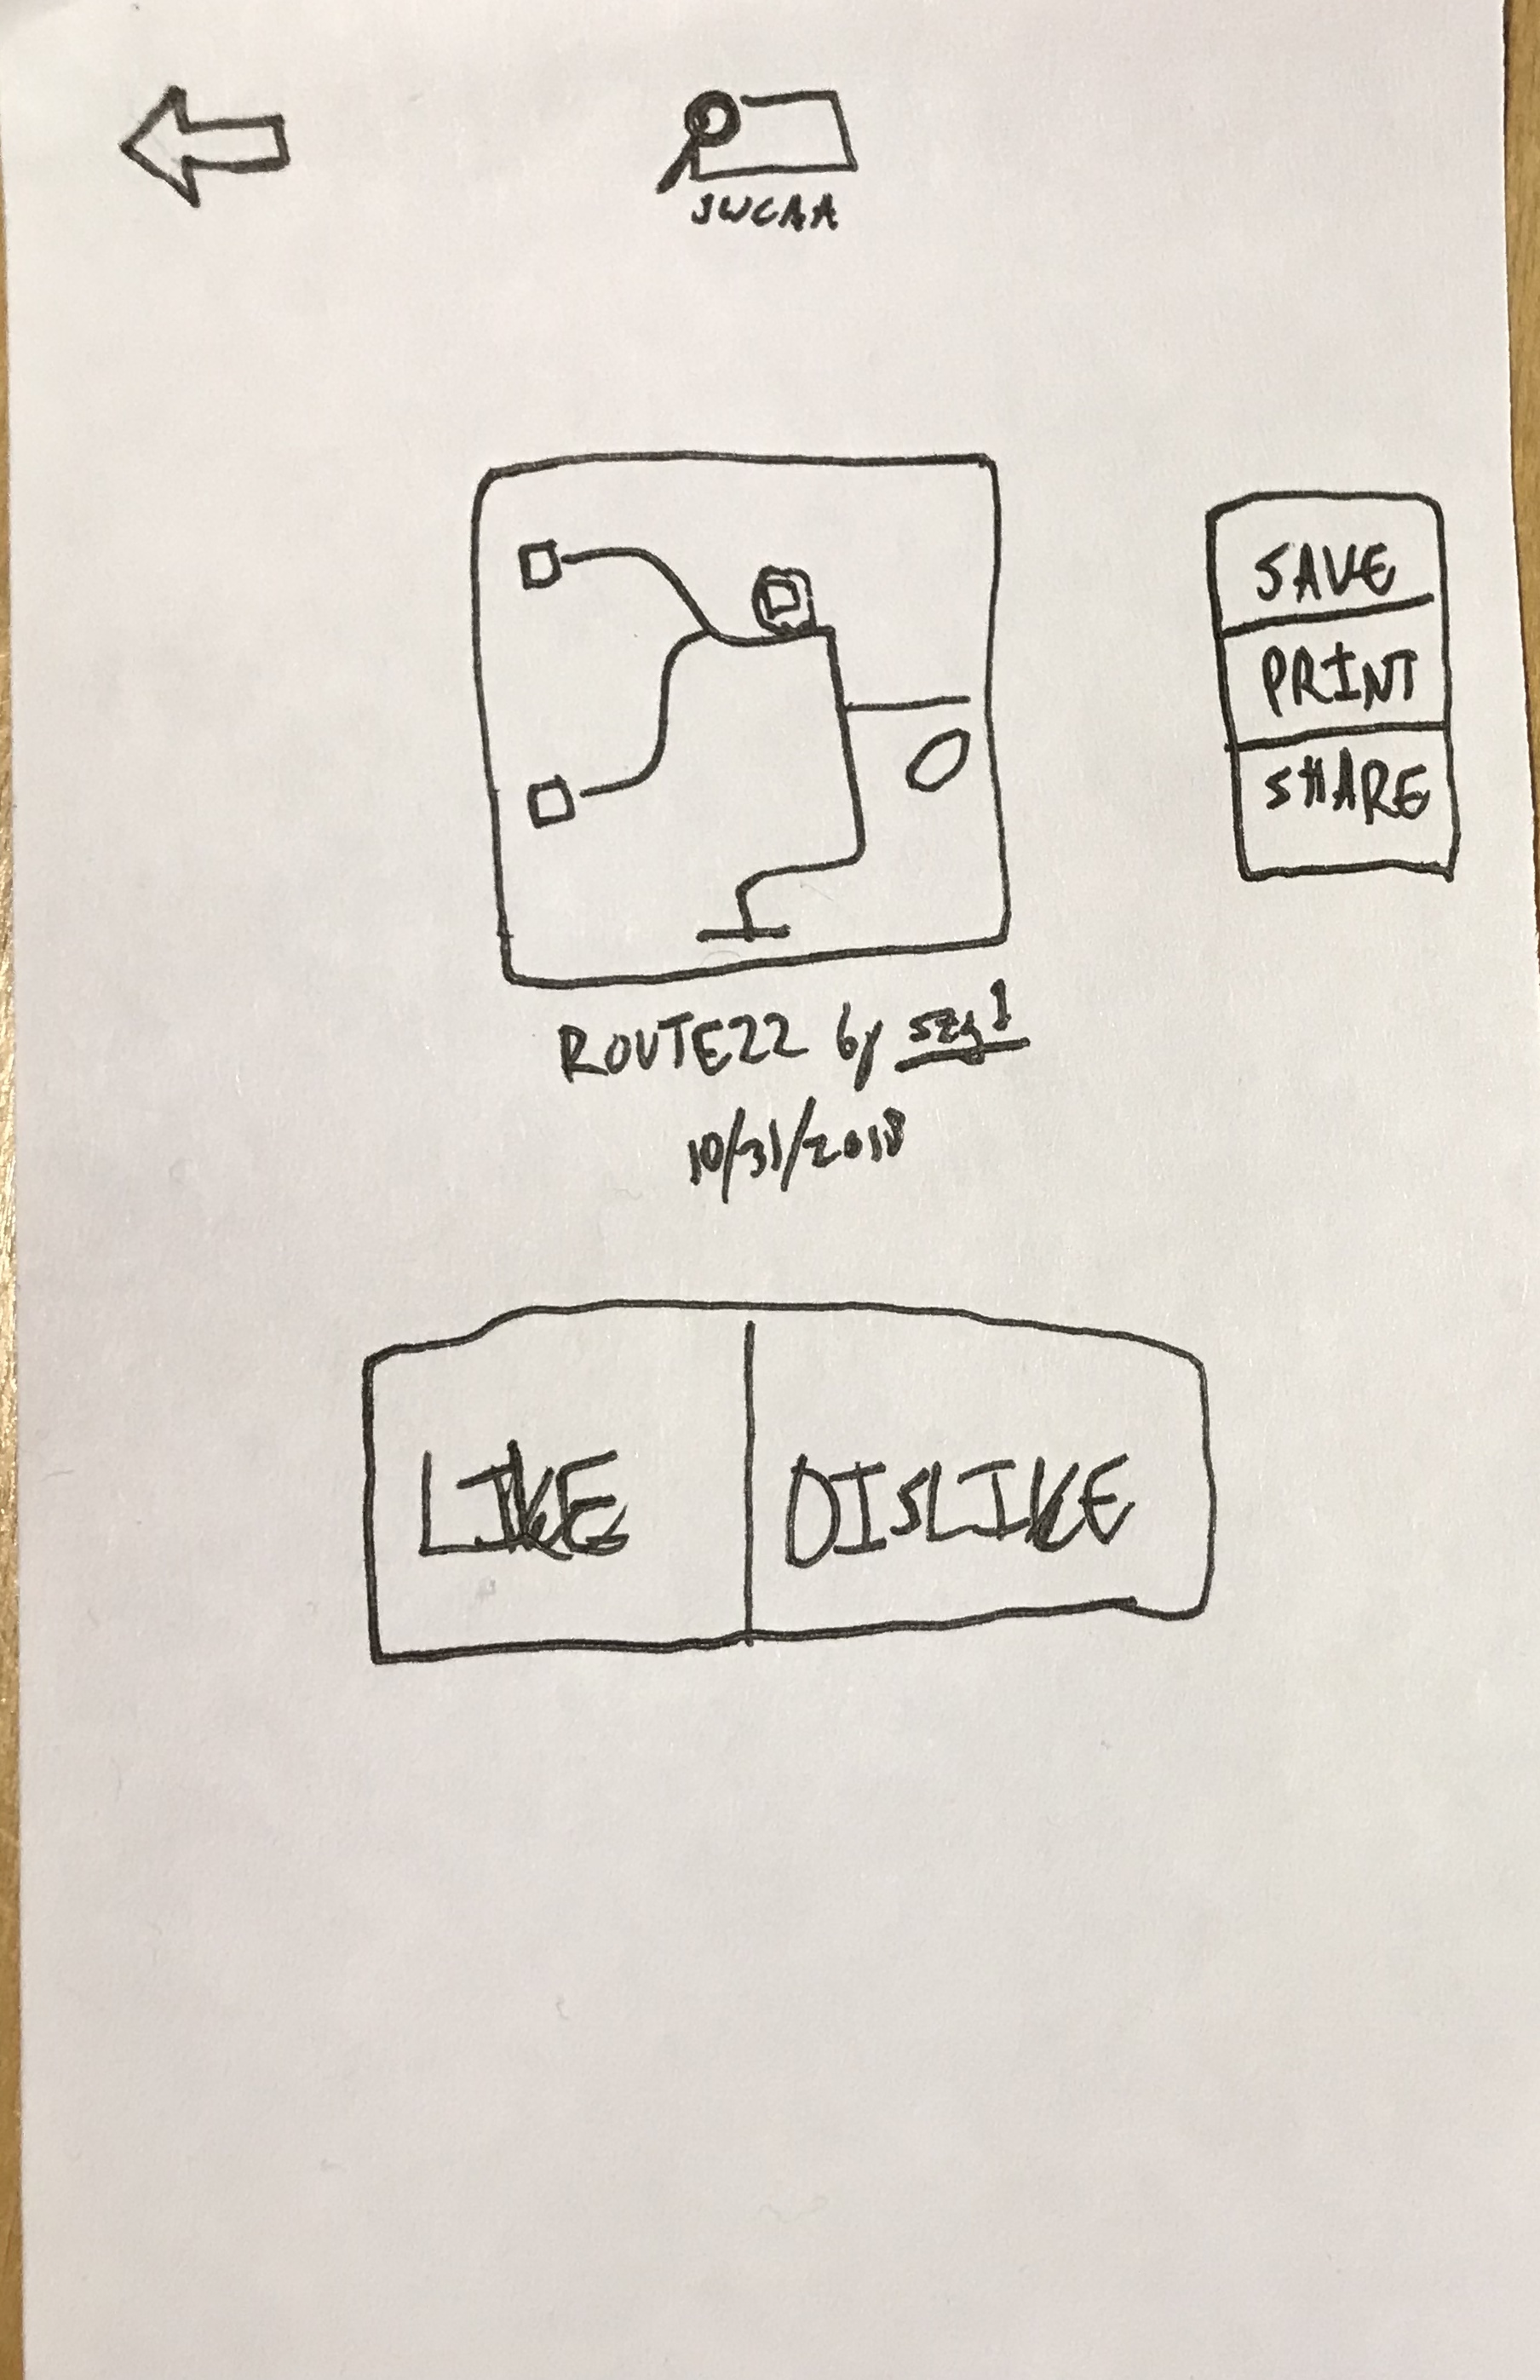 JWCAA
SAVE
PRINT
SHARE
ROUTE22 by szg1
10/31/2018
LIKE
DISLIKE